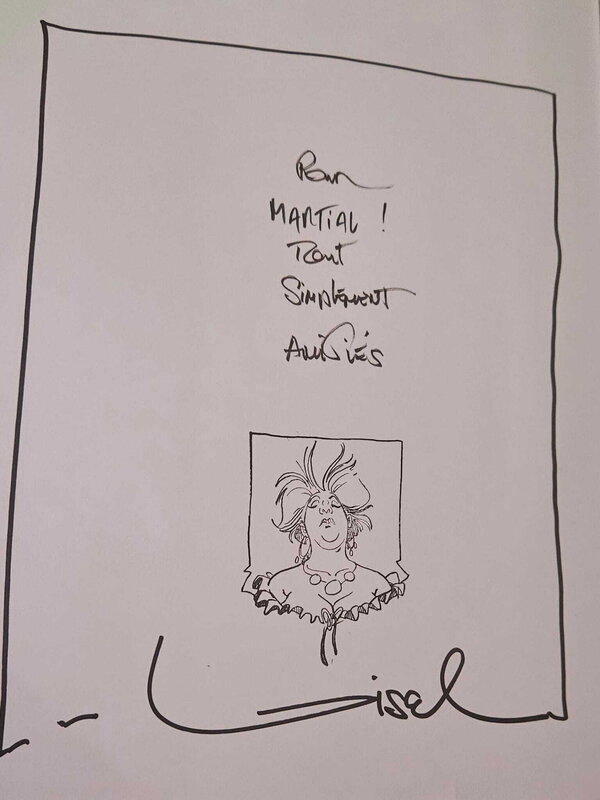 Pour
MARTIAL !
Tout
SIMPLEMENT
AMITIÉS
Loisel